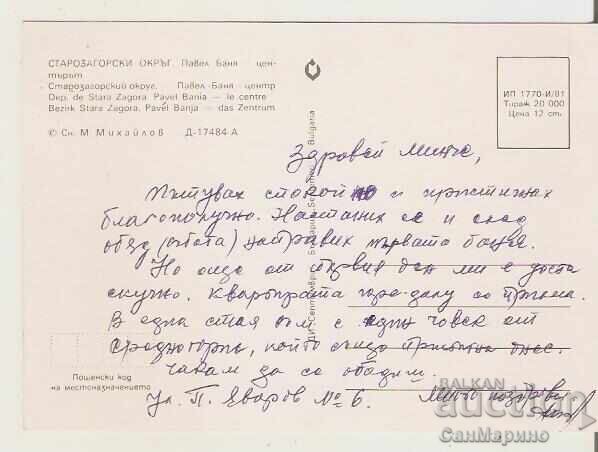 СТАРОЗАГОРСКИ ОКРЪГ. Павел Баня — цен-
търът
Старозагорский округ. Павел Баня — центр
Dep. de Stara Zagora. Pavel Bania — le centre
Bezirk Stara Zagora. Pavel Banja — das Zentrum
© Сн. М. Михайлов Д-17484-А
ИП 1770-И/81
Тираж 20 000
Цена 12 ст.
ДИ „Септември“, България, Bulgaria
Здравей Минче,
Пътувах спокойно и пристигнах
благополучно. Настаних се и след
обяд (събота) направих първата баня.
Но още от първия ден ми е доста
скучно. Квартирата горе-долу се търпи.
В една стая съм с един човек от
Средногорци, който също пристигна днес.
Чакам да се обадиш.
Ул. П. Яворов № 6. Много поздрави
Пощенски код
на местоназначението
BALKAN
auction
СанМарино